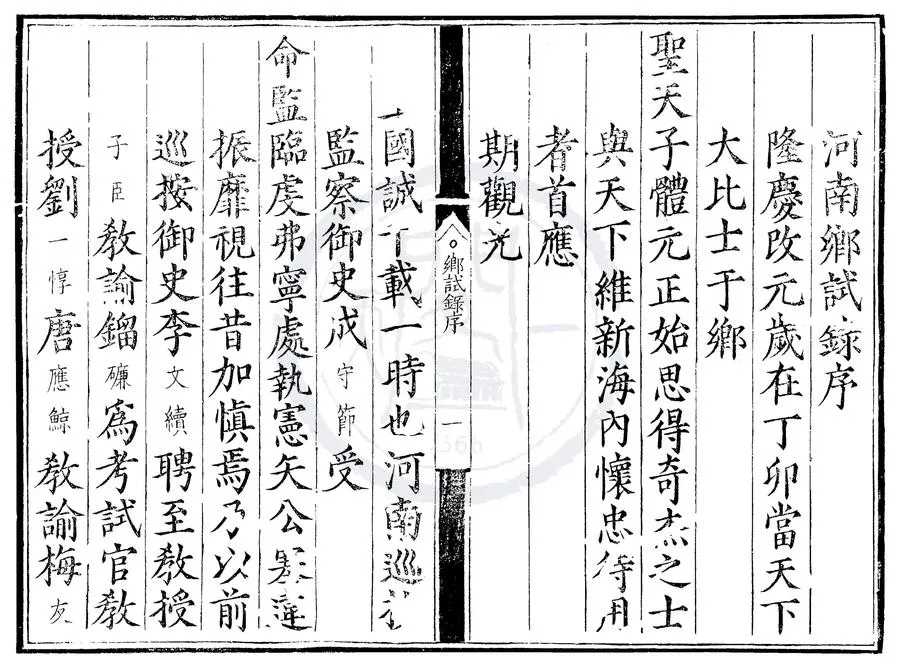 河南鄉試錄序
隆慶改元歲在丁卯當天下
大比士于鄉
聖天子體元正始思得奇杰之士
與天下維新海內懷忠待用
者首應
期觀光
鄉試錄序
一
國誠千載一時也河南巡按
監察御史成守節受
命監臨虔弗寧處執憲矢公違
振靡視往昔加慎焉乃以前
巡按御史李文續聘至教授
子臣教諭鎦磏為考試官教
授劉一惇唐應鯨教諭梅友